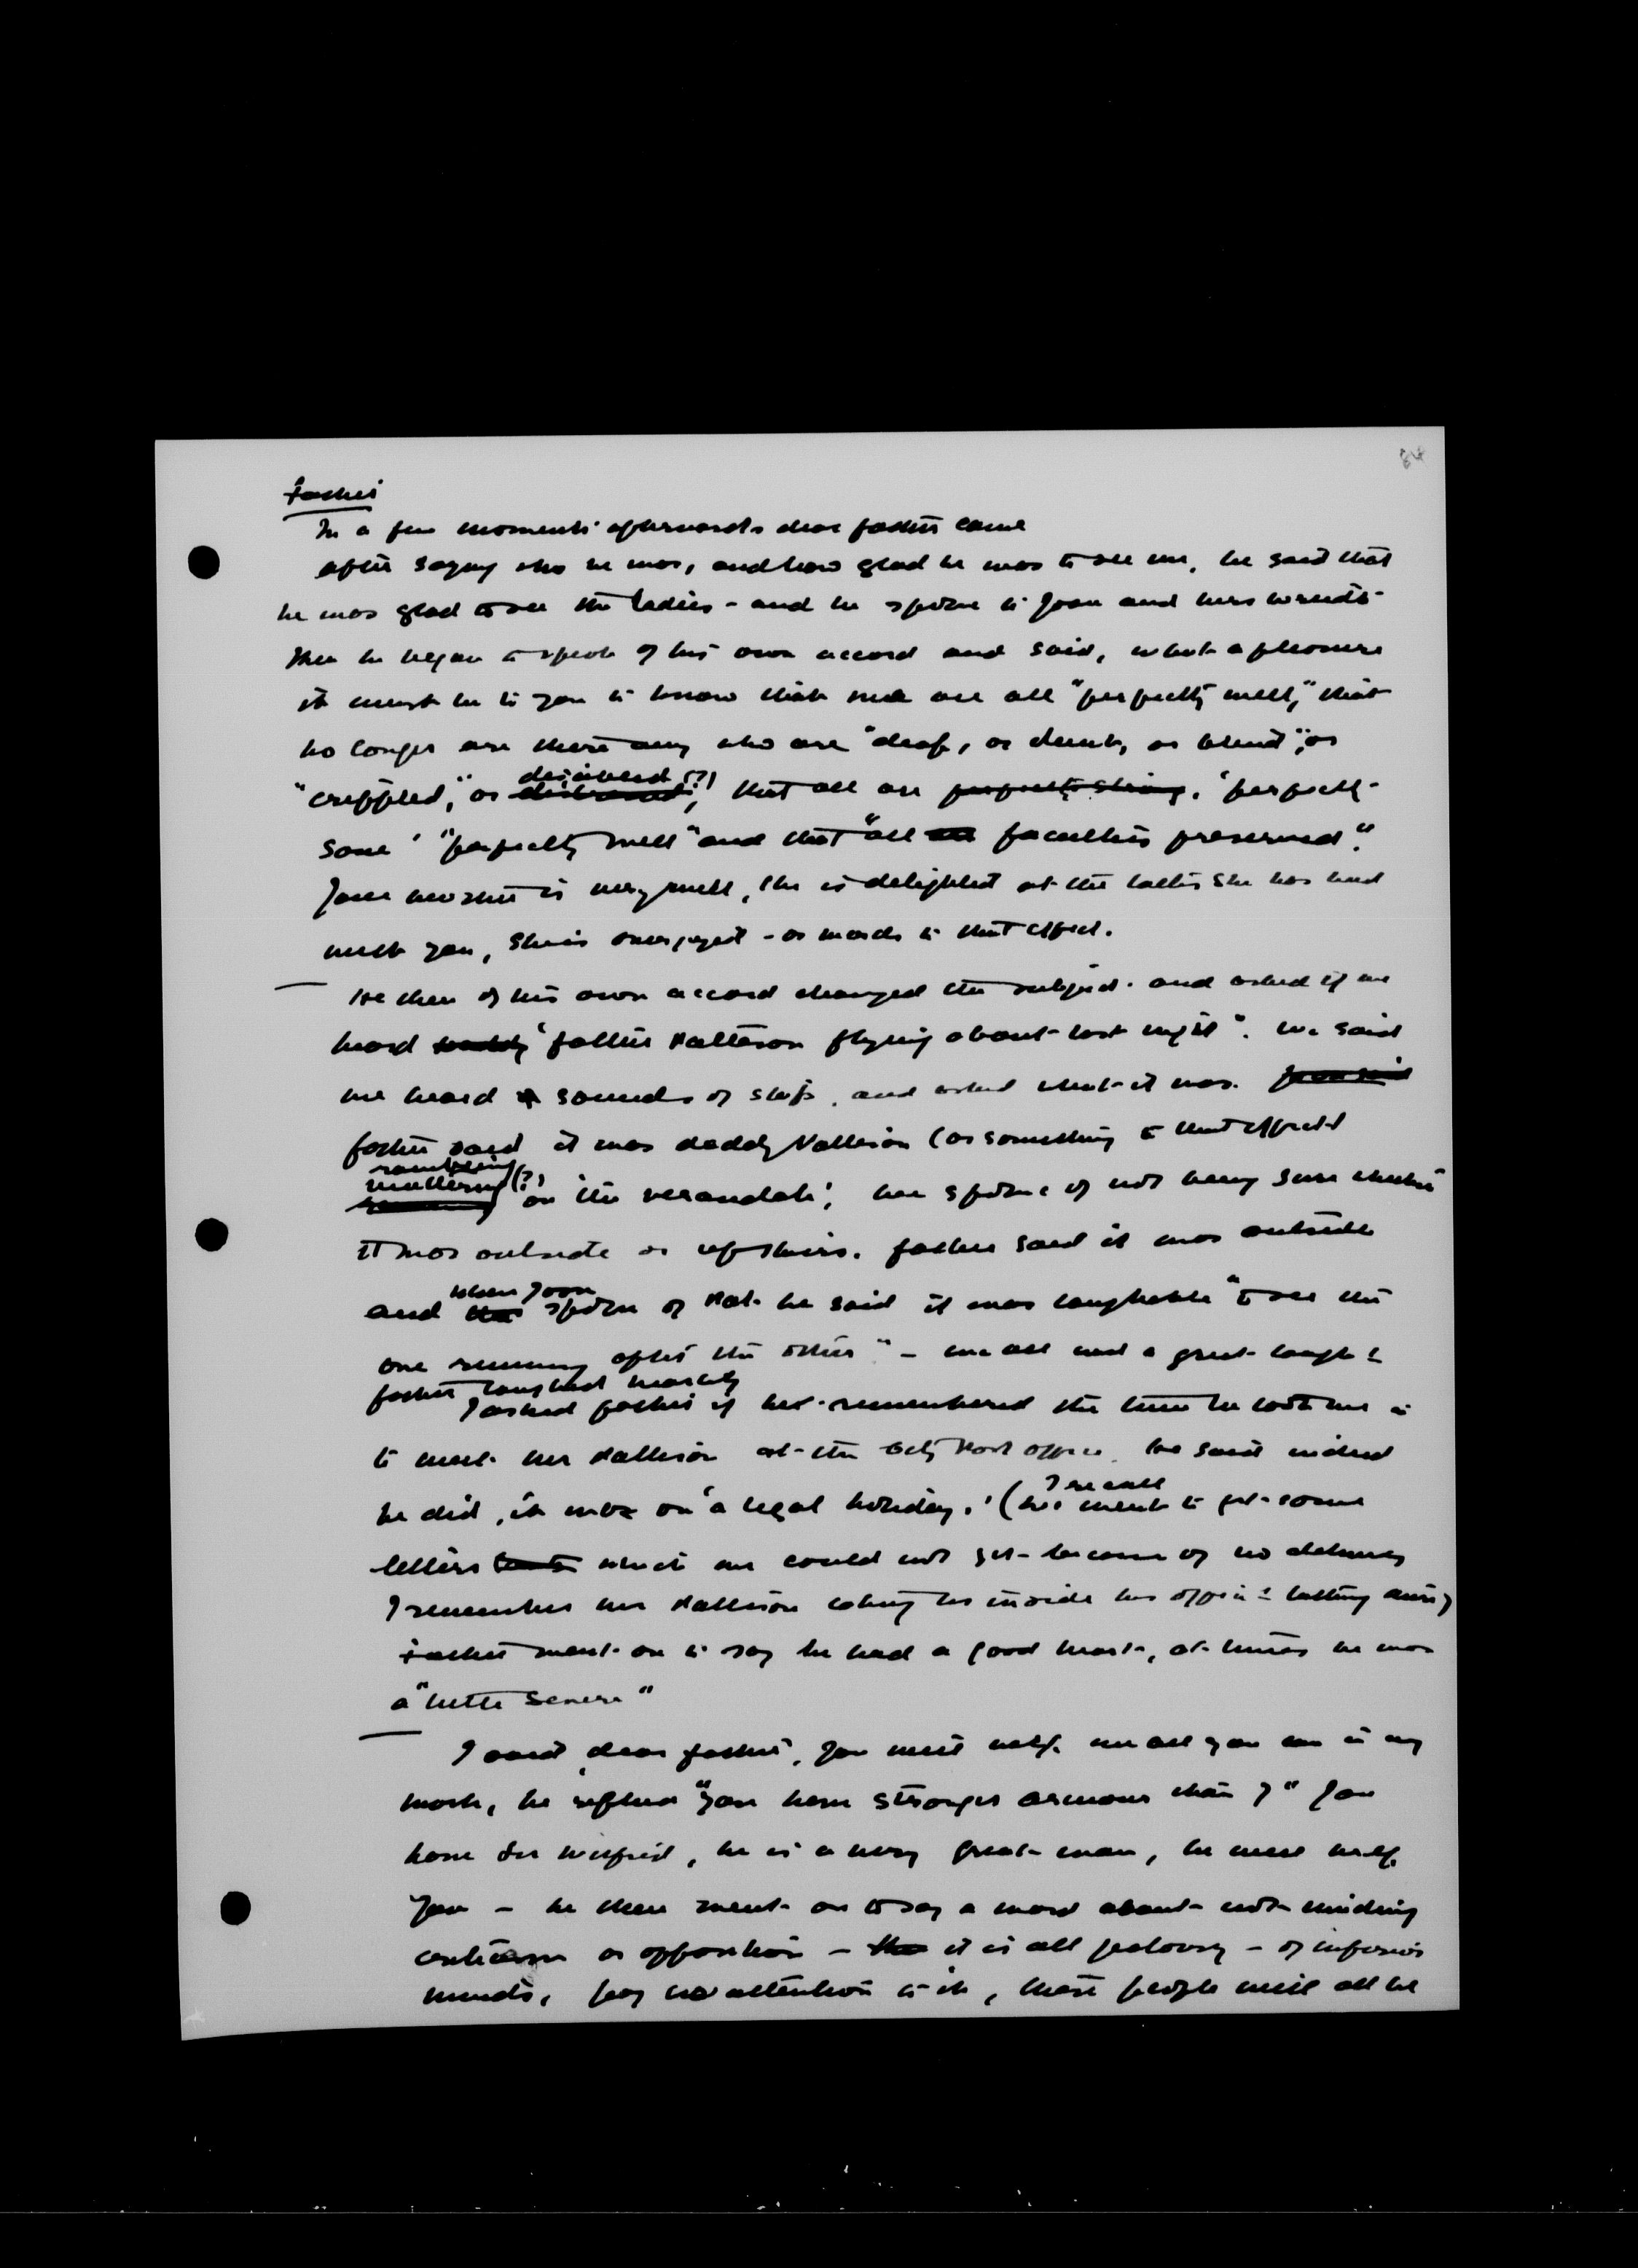 84
Father
In a few moments afterwards dear father came
after saying who he was, and how glad he was to see me, he said that
he was glad to see the ladies - and he spoke to Joan and hers
Then he began to speak of his own accord and said, what a pleasure
it must be to you to know that we are all "perfectly well," that
no longer are there any who are "deaf, or dumb, or blind", or
"crippled," or diseased (?), that all are perfectly strong. 'perfectly
sane' "perfectly well" and that "all faculties preserved".
Your mother is very well, she is delighted at the talks she has had
with you, she is overjoyed - or words to that effect.
He then of his own accord changed the subject. and asked if we
heard 'father Patteson flying about last night'. We said
we heard sounds of steps, and asked what it was. Joan said
father said it was daddy Patteson (or something to that effect)
rambling
muttering (?) on the verandah', we spoke of not being sure whether
it was outside or upstairs. father said it was outside
and when Joan spoke of Pat. he said it was laughable "to see the
one running after the other" - we all had a great laugh &
father laughed heartily
I asked father if he remembered the time he took me in
to meet Mr Patteson at the City Post office. He said indeed
he did, it was on 'a legal holiday.' (I recall we went to get some
letters which we could not get because of no delivery
I remember Mr Patteson taking us inside his office & talking
Father went on to say he had a good heart, at times he was
a "little severe"
I said, dear father, you will help me all you can in my
work, he replied "you have stronger armour than I" You
have Sir Wilfrid, he is a very great man, he will help
you - he then went on to say a word about not minding
criticism or opposition - it is all jealousy - of inferior
minds, pay no attention to it, these people will all be